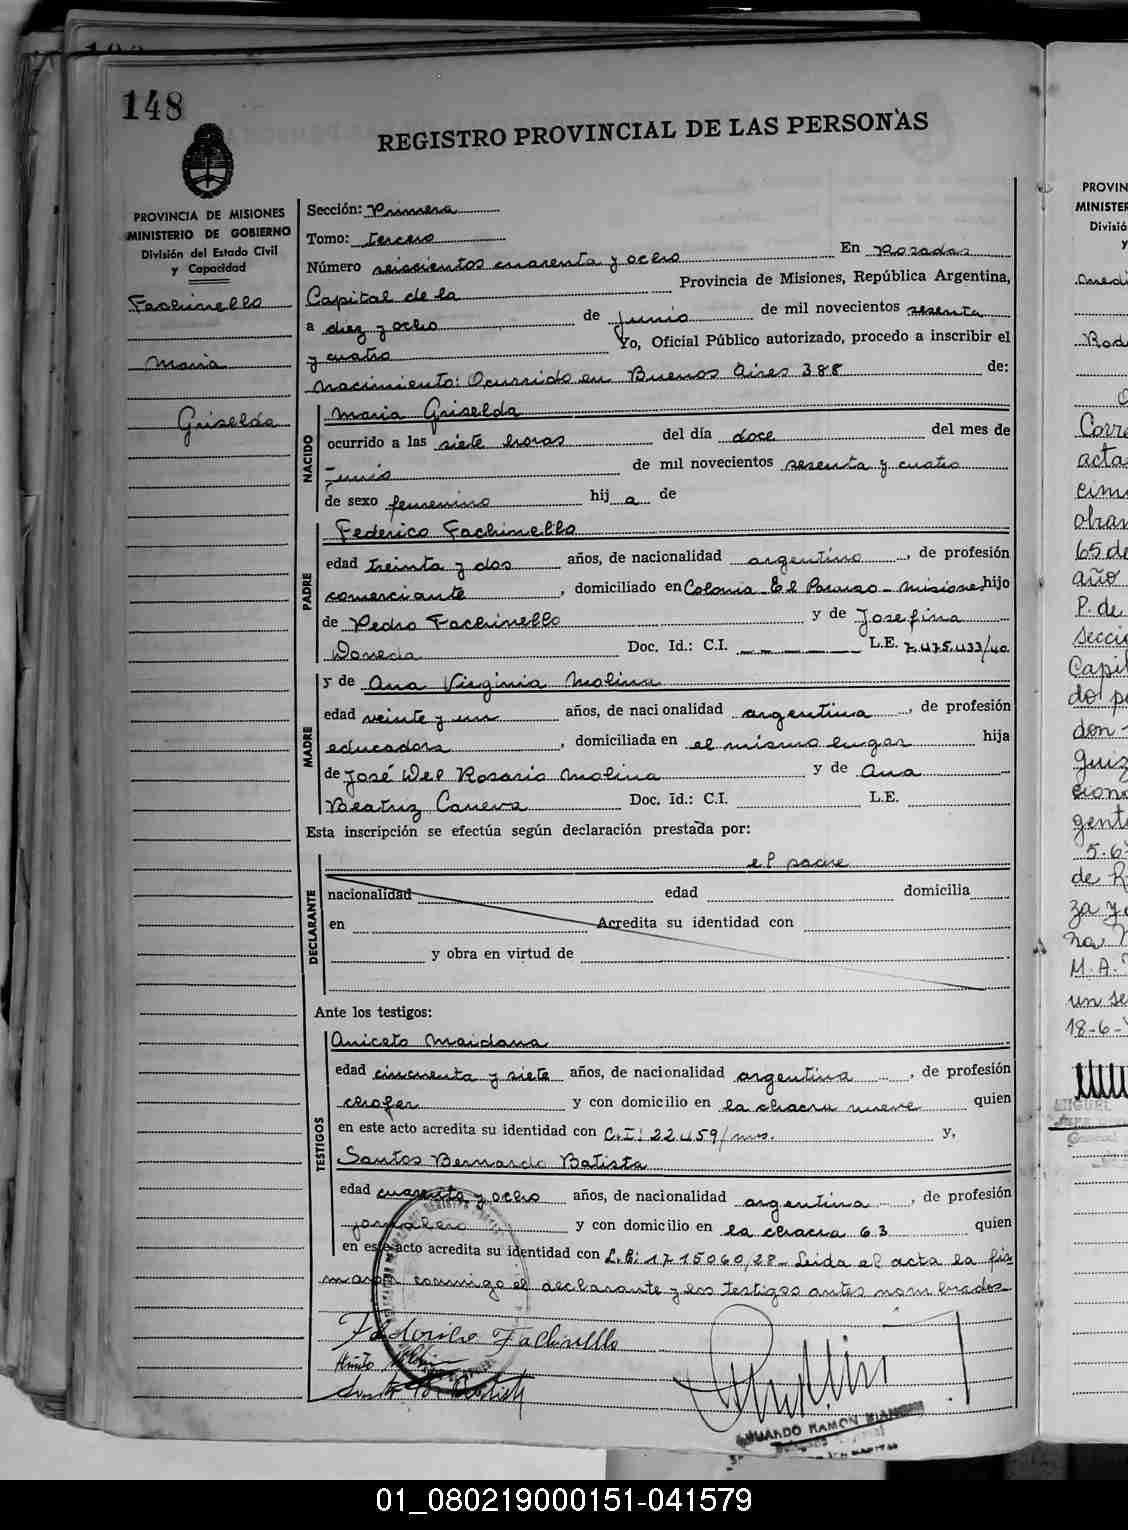 148
REGISTRO PROVINCIAL DE LAS PERSONAS
PROVINCIA DE MISIONES
MINISTERIO DE GOBIERNO
División del Estado Civil
y Capacidad
Fachinello
Maria
Griselda
Sección: Primera
Tomo: tercero
Número seiscientos cuarenta y ocho En Posadas
Capital de la Provincia de Misiones, República Argentina,
a diez y ocho de junio de mil novecientos sesenta
y cuatro Yo, Oficial Público autorizado, procedo a inscribir el
nacimiento: Ocurrido en Buenos Aires 388 de:
NACIDO
Maria Griselda
ocurrido a las siete horas del día doce del mes de
Junio de mil novecientos sesenta y cuatro
de sexo femenino hij a de
PADRE
Federico Fachinello
edad treinta y dos años, de nacionalidad argentino, de profesión
comerciante, domiciliado en Colonia El Paraiso - Misiones hijo
de Pedro Fachinello y de Josefina
Doneda Doc. Id.: C.I. L.E. 7.475.433/40
MADRE
y de Ana Virginia Molina
edad veinte y un años, de nacionalidad argentina, de profesión
educadora, domiciliada en el mismo lugar hija
de José Del Rosario Molina y de Ana
Beatriz Caneva Doc. Id.: C.I. L.E.
Esta inscripción se efectúa según declaración prestada por:
el padre
DECLARANTE
nacionalidad edad domicilia
en Acredita su identidad con
y obra en virtud de
Ante los testigos:
TESTIGOS
Aniceto Maidana
edad cincuenta y siete años, de nacionalidad argentina, de profesión
chofer y con domicilio en la chacra nueve quien
en este acto acredita su identidad con C.I: 22.459/mrs. y,
Santos Bernardo Batista
edad cuarenta y ocho años, de nacionalidad argentina, de profesión
jornalero y con domicilio en la chacra 63 quien
en este acto acredita su identidad con L.E: 1715060/28- Leida el acta la fir-
maron conmigo el declarante y los testigos antes nombrados
Federico Fachinello
EDUARDO RAMON
PROVIN
MINISTER
Divisió
y
Corre
acta
65 de
año
P. de
Capit
do p
don
5-6-
de
M.A.
un se
18-6-
MIGUEL
01_080219000151-041579